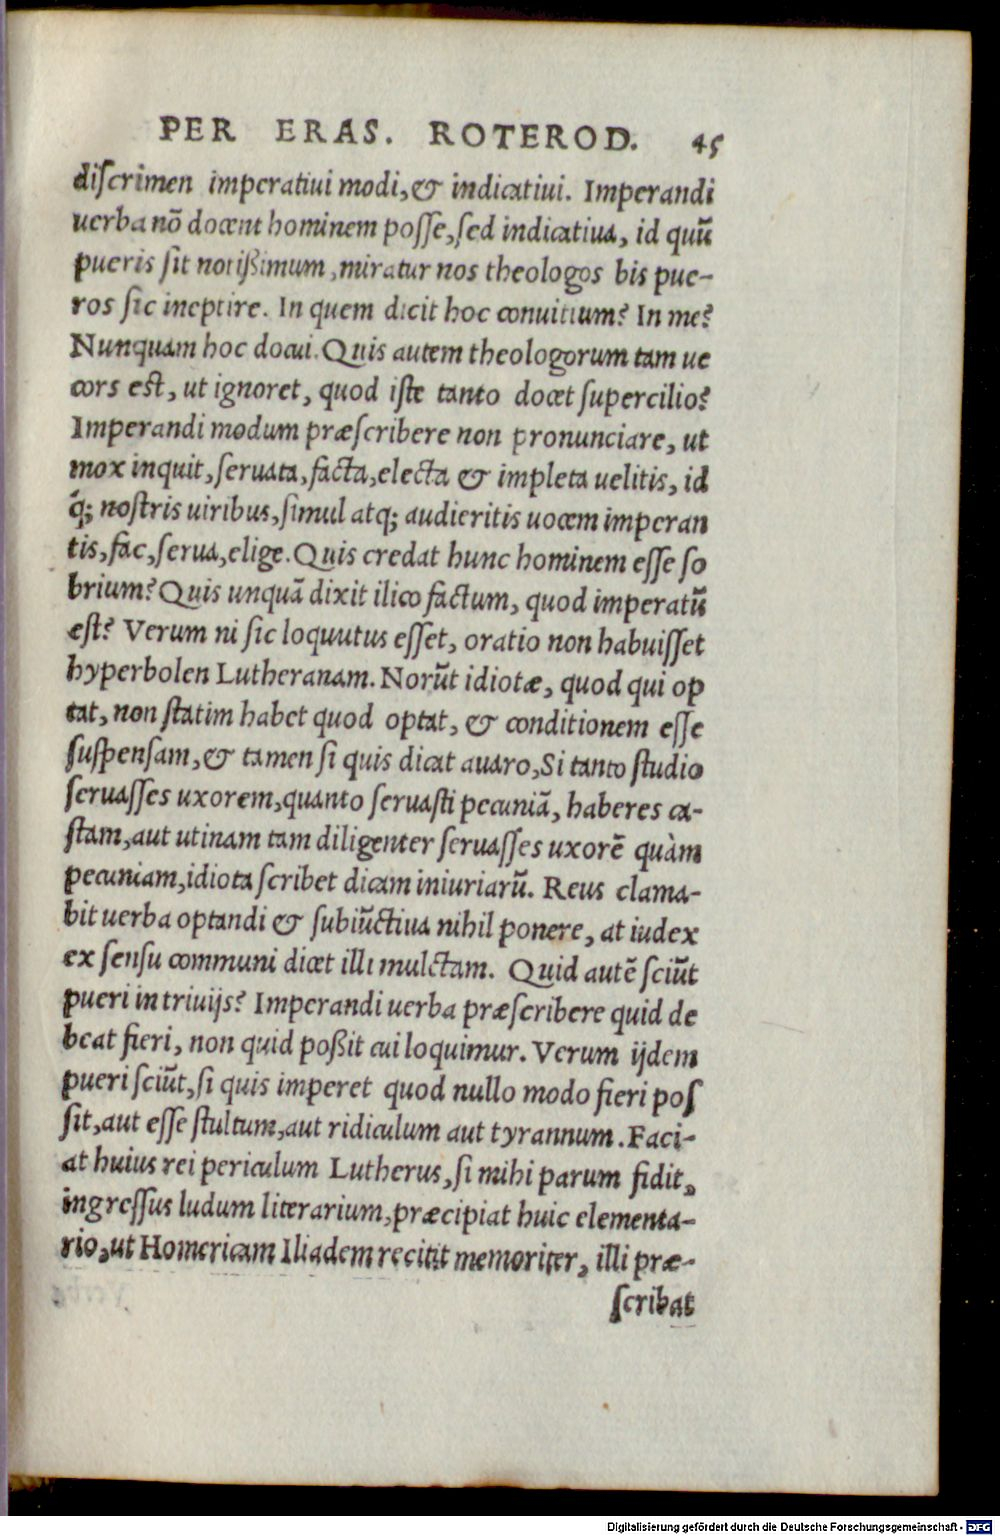 PER ERAS. ROTEROD. 45
diſcrimen imperatiui modi, & indicatiui. Imperandi
uerba nō docent hominem poſſe, ſed indicatiua, id quū
pueris ſit notißimum, miratur nos theologos bis pue-
ros ſic ineptire. In quem dicit hoc conuitium? In me?
Nunquam hoc docui. Quis autem theologorum tam ue
cors eſt, ut ignoret, quod iſte tanto docet ſupercilio?
Imperandi modum præſcribere non pronunciare, ut
mox inquit, ſeruata, facta, electa & impleta uelitis, id
q̃; noſtris uiribus, ſimul atq; audieritis uocem imperan
tis, fac, ſerua, elige. Quis credat hunc hominem eſſe ſo
brium? Quis unquā dixit ilico factum, quod imperatū
eſt? Verum ni ſic loquutus eſſet, oratio non habuiſſet
hyperbolen Lutheranam. Norūt idiotæ, quod qui op
tat, non ſtatim habet quod optat, & conditionem eſſe
ſuſpenſam, & tamen ſi quis dicat auaro, Si tanto ſtudio
ſeruaſſes uxorem, quanto ſeruaſti pecuniā, haberes ca-
ſtam, aut utinam tam diligenter ſeruaſſes uxorē quàm
pecuniam, idiota ſcribet dicam iniuriarū. Reus clama-
bit uerba optandi & ſubiūctiua nihil ponere, at iudex
ex ſenſu communi dicet illi mulctam. Quid autē ſciūt
pueri in triuijs? Imperandi uerba præſcribere quid de
beat fieri, non quid poßit cui loquimur. Verum ijdem
pueri ſciūt, ſi quis imperet quod nullo modo fieri poſ
ſit, aut eſſe ſtultum, aut ridiculum aut tyrannum. Faci-
at huius rei periculum Lutherus, ſi mihi parum fidit,
ingreſſus ludum literarium, præcipiat huic elementa-
rio, ut Homericam Iliadem recitit memoriter, illi præ-
ſcribat
Digitalisierung gefördert durch die Deutsche Forschungsgemeinschaft - DFG